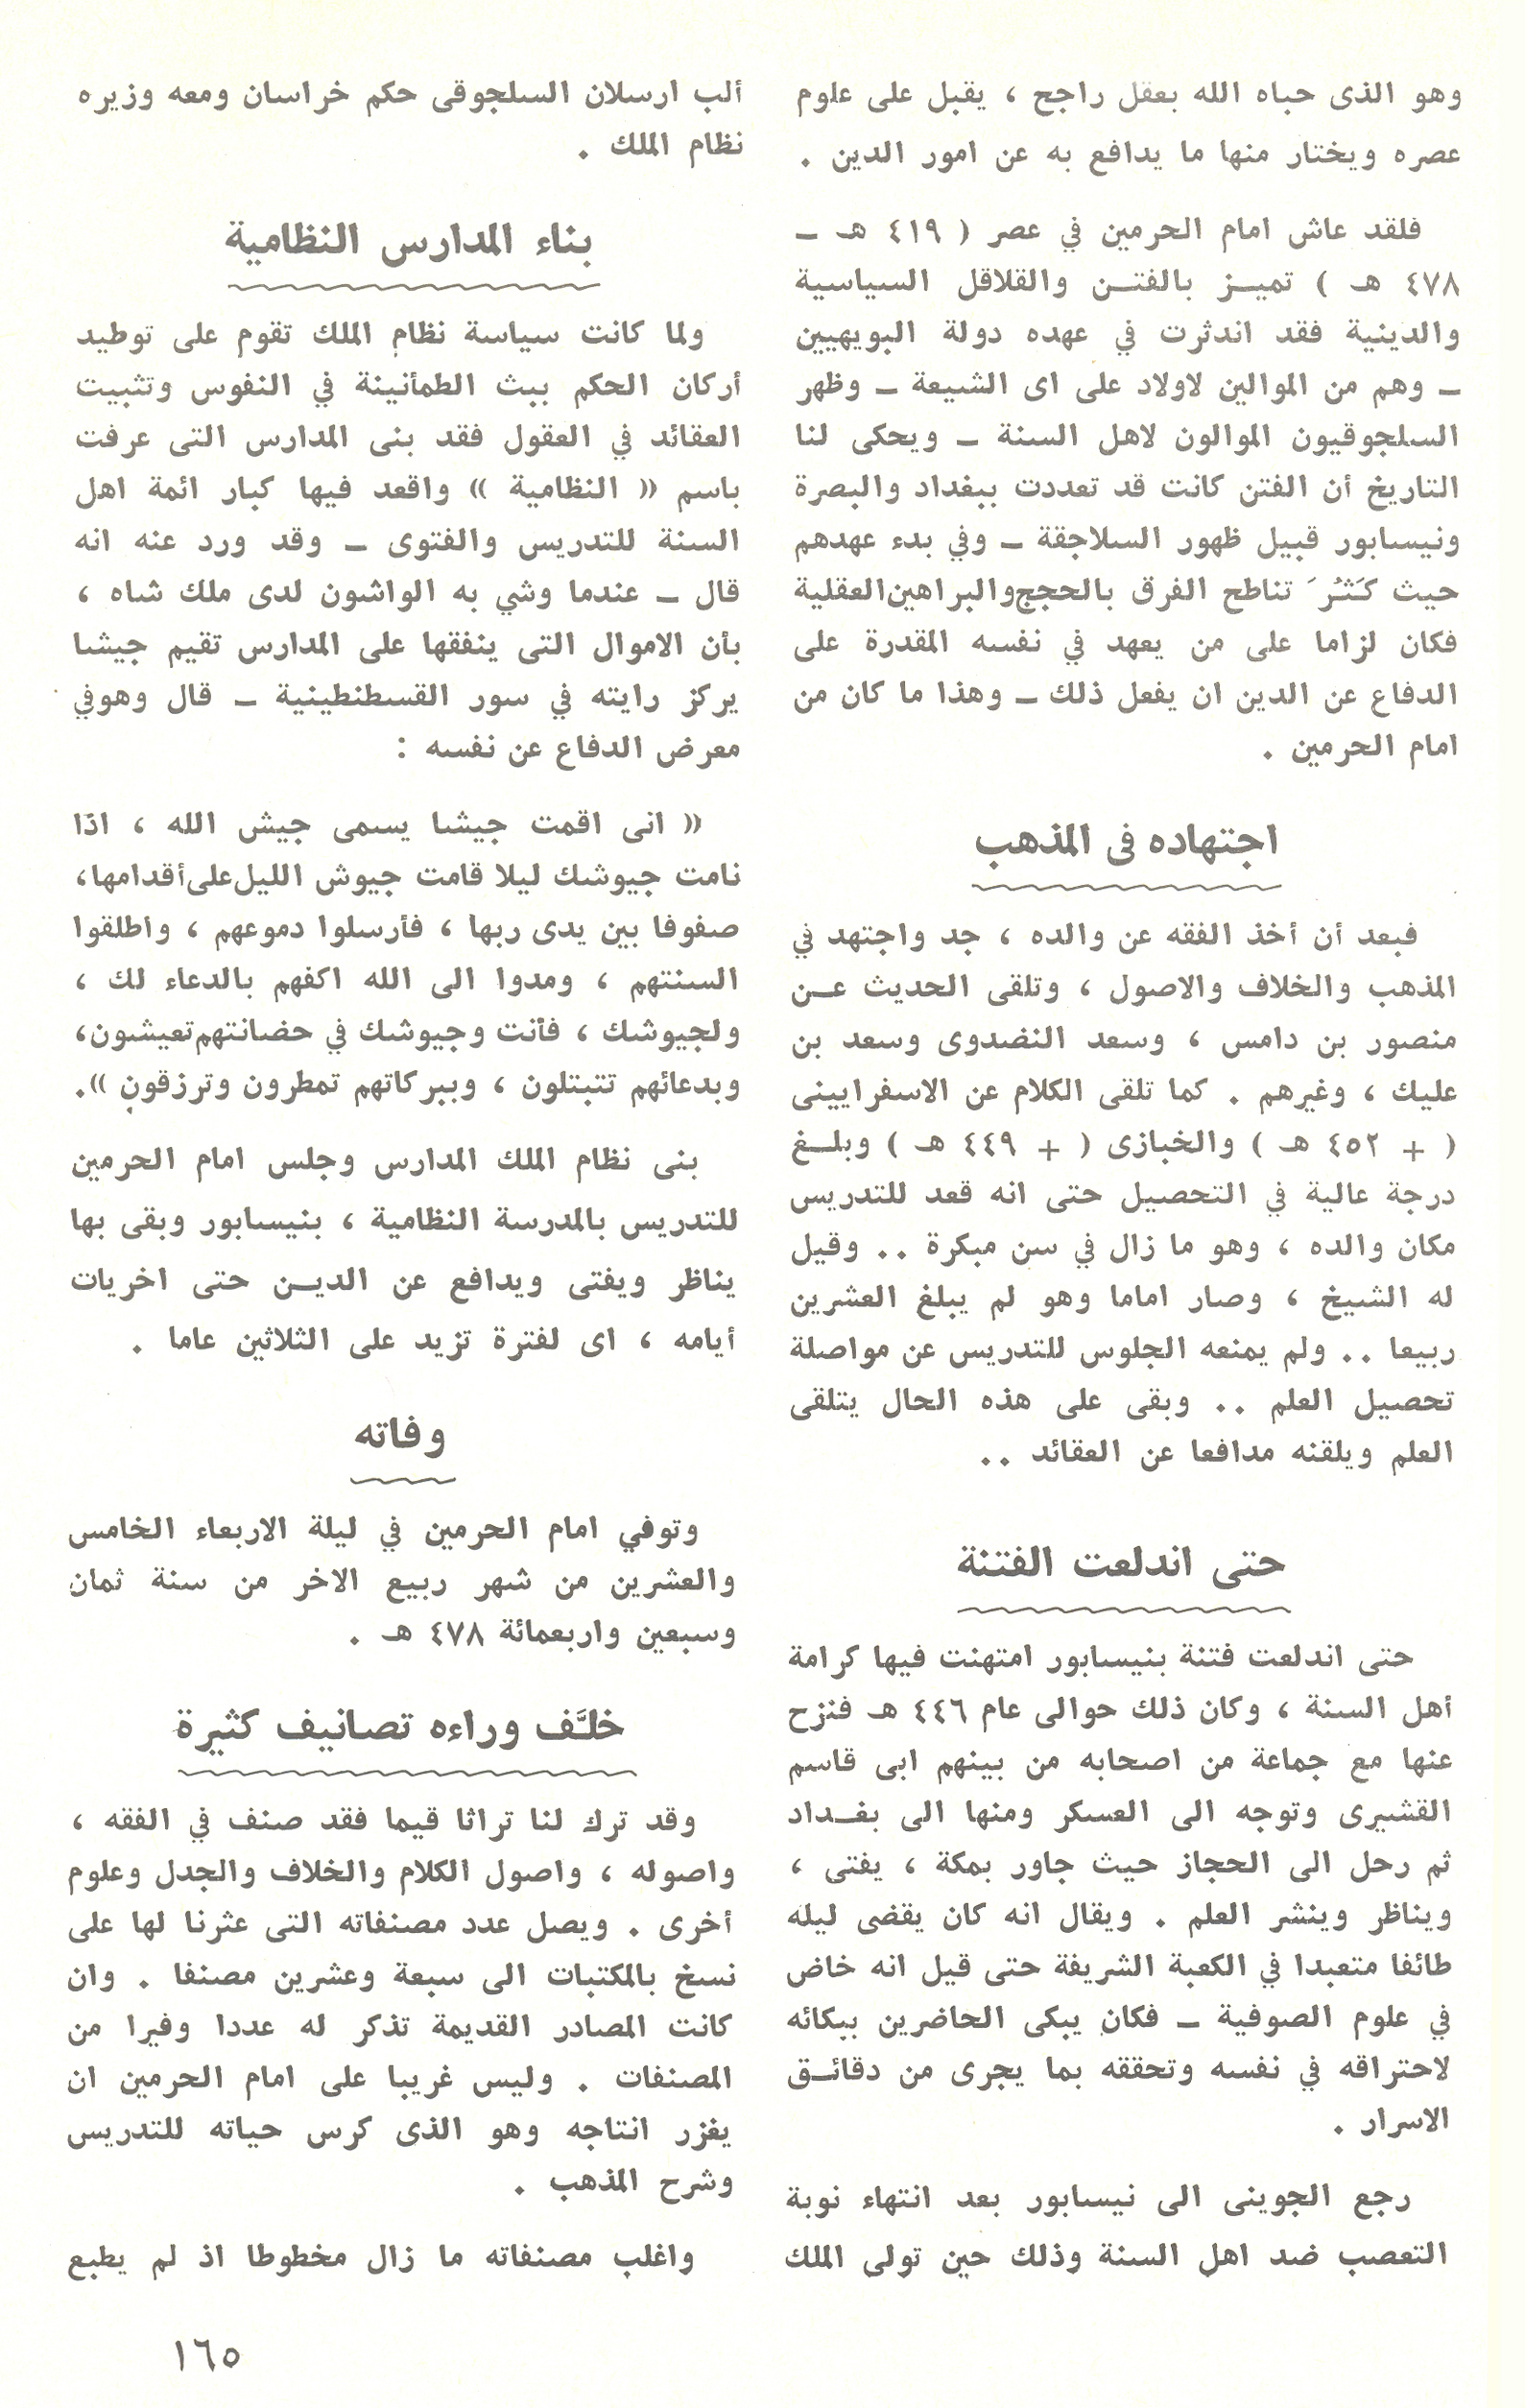 وهو الذى حباه الله بعقل راجح ، يقبل على علوم
عصره ويختار منها ما يدافع به عن امور الدين .
فلقد عاش امام الحرمين في عصر ( ٤١٩ هـ ــ
٤٧٨ هـ ) تميـــز بالفتـــن والقلاقل السياسية
والدينية فقد اندثرت في عهده دولة البويهيين
ــ وهم من الموالين لاولاد على اى الشيعة ــ وظهر
السلجوقيون الموالون لاهل السنة ــ ويحكى لنا
التاريخ أن الفتن كانت قد تعددت ببغداد والبصرة
ونيسابور قبيل ظهور السلاجقة ــ وفي بدء عهدهم
حيث كَثُرَ تناطح الفرق بالحجج والبراهين العقلية
فكان لزاما على من يعهد في نفسه المقدرة على
الدفاع عن الدين ان يفعل ذلك ــ وهذا ما كان من
امام الحرمين .
اجتهاده فى المذهب
فبعد أن أخذ الفقه عن والده ، جد واجتهد في
المذهب والخلاف والاصول ، وتلقى الحديث عـــن
منصور بن دامس ، وسعد النضدوى وسعد بن
عليك ، وغيرهم . كما تلقى الكلام عن الاسفرايينى
( + ٤٥٢ هـ ) والخبازى ( + ٤٤٩ هـ ) وبلـــغ
درجة عالية في التحصيل حتى انه قعد للتدريس
مكان والده ، وهو ما زال في سن مبكرة .. وقيل
له الشيخ ، وصار اماما وهو لم يبلغ العشرين
ربيعا .. ولم يمنعه الجلوس للتدريس عن مواصلة
تحصيل العلم .. وبقى على هذه الحال يتلقى
العلم ويلقنه مدافعا عن العقائد ..
حتى اندلعت الفتنة
حتى اندلعت فتنة بنيسابور امتهنت فيها كرامة
أهل السنة ، وكان ذلك حوالى عام ٤٤٦ هـ فنزح
عنها مع جماعة من اصحابه من بينهم ابى قاسم
القشيرى وتوجه الى العسكر ومنها الى بغـــداد
ثم رحل الى الحجاز حيث جاور بمكة ، يفتى ،
ويناظر وينشر العلم . ويقال انه كان يقضى ليله
طائفا متعبدا في الكعبة الشريفة حتى قيل انه خاض
في علوم الصوفية ــ فكان يبكى الحاضرين ببكائه
لاحتراقه في نفسه وتحققه بما يجرى من دقائـــق
الاسرار .
رجع الجوينى الى نيسابور بعد انتهاء نوبة
التعصب ضد اهل السنة وذلك حين تولى الملك
ألب ارسلان السلجوقى حكم خراسان ومعه وزيره
نظام الملك .
بناء المدارس النظامية
ولما كانت سياسة نظام الملك تقوم على توطيد
أركان الحكم ببث الطمأنينة في النفوس وتثبيت
العقائد في العقول فقد بنى المدارس التى عرفت
باسم « النظامية » واقعد فيها كبار ائمة اهل
السنة للتدريس والفتوى ــ وقد ورد عنه انه
قال ــ عندما وشي به الواشون لدى ملك شاه ،
بأن الاموال التى ينفقها على المدارس تقيم جيشا
يركز رايته في سور القسطنطينية ــ قال وهو في
معرض الدفاع عن نفسه :
« انى اقمت جيشا يسمى جيش الله ، اذا
نامت جيوشك ليلا قامت جيوش الليل على أقدامها ،
صفوفا بين يدى ربها ، فأرسلوا دموعهم ، واطلقوا
السنتهم ، ومدوا الى الله اكفهم بالدعاء لك ،
ولجيوشك ، فأنت وجيوشك في حضانتهم تعيشون ،
وبدعائهم تتبتلون ، وببركاتهم تمطرون وترزقون » .
بنى نظام الملك المدارس وجلس امام الحرمين
للتدريس بالمدرسة النظامية ، بنيسابور وبقى بها
يناظر ويفتى ويدافع عن الديـــن حتى اخريات
أيامه ، اى لفترة تزيد على الثلاثين عاما .
وفاته
وتوفي امام الحرمين في ليلة الاربعاء الخامس
والعشرين من شهر ربيع الاخر من سنة ثمان
وسبعين واربعمائة ٤٧٨ هـ .
خلَّف وراءه تصانيف كثيرة
وقد ترك لنا تراثا قيما فقد صنف في الفقه ،
واصوله ، واصول الكلام والخلاف والجدل وعلوم
أخرى . ويصل عدد مصنفاته التى عثرنا لها على
نسخ بالمكتبات الى سبعة وعشرين مصنفا . وان
كانت المصادر القديمة تذكر له عددا وفيرا من
المصنفات . وليس غريبا على امام الحرمين ان
يغزر انتاجه وهو الذى كرس حياته للتدريس
وشرح المذهب .
واغلب مصنفاته ما زال مخطوطا اذ لم يطبع
١٦٥